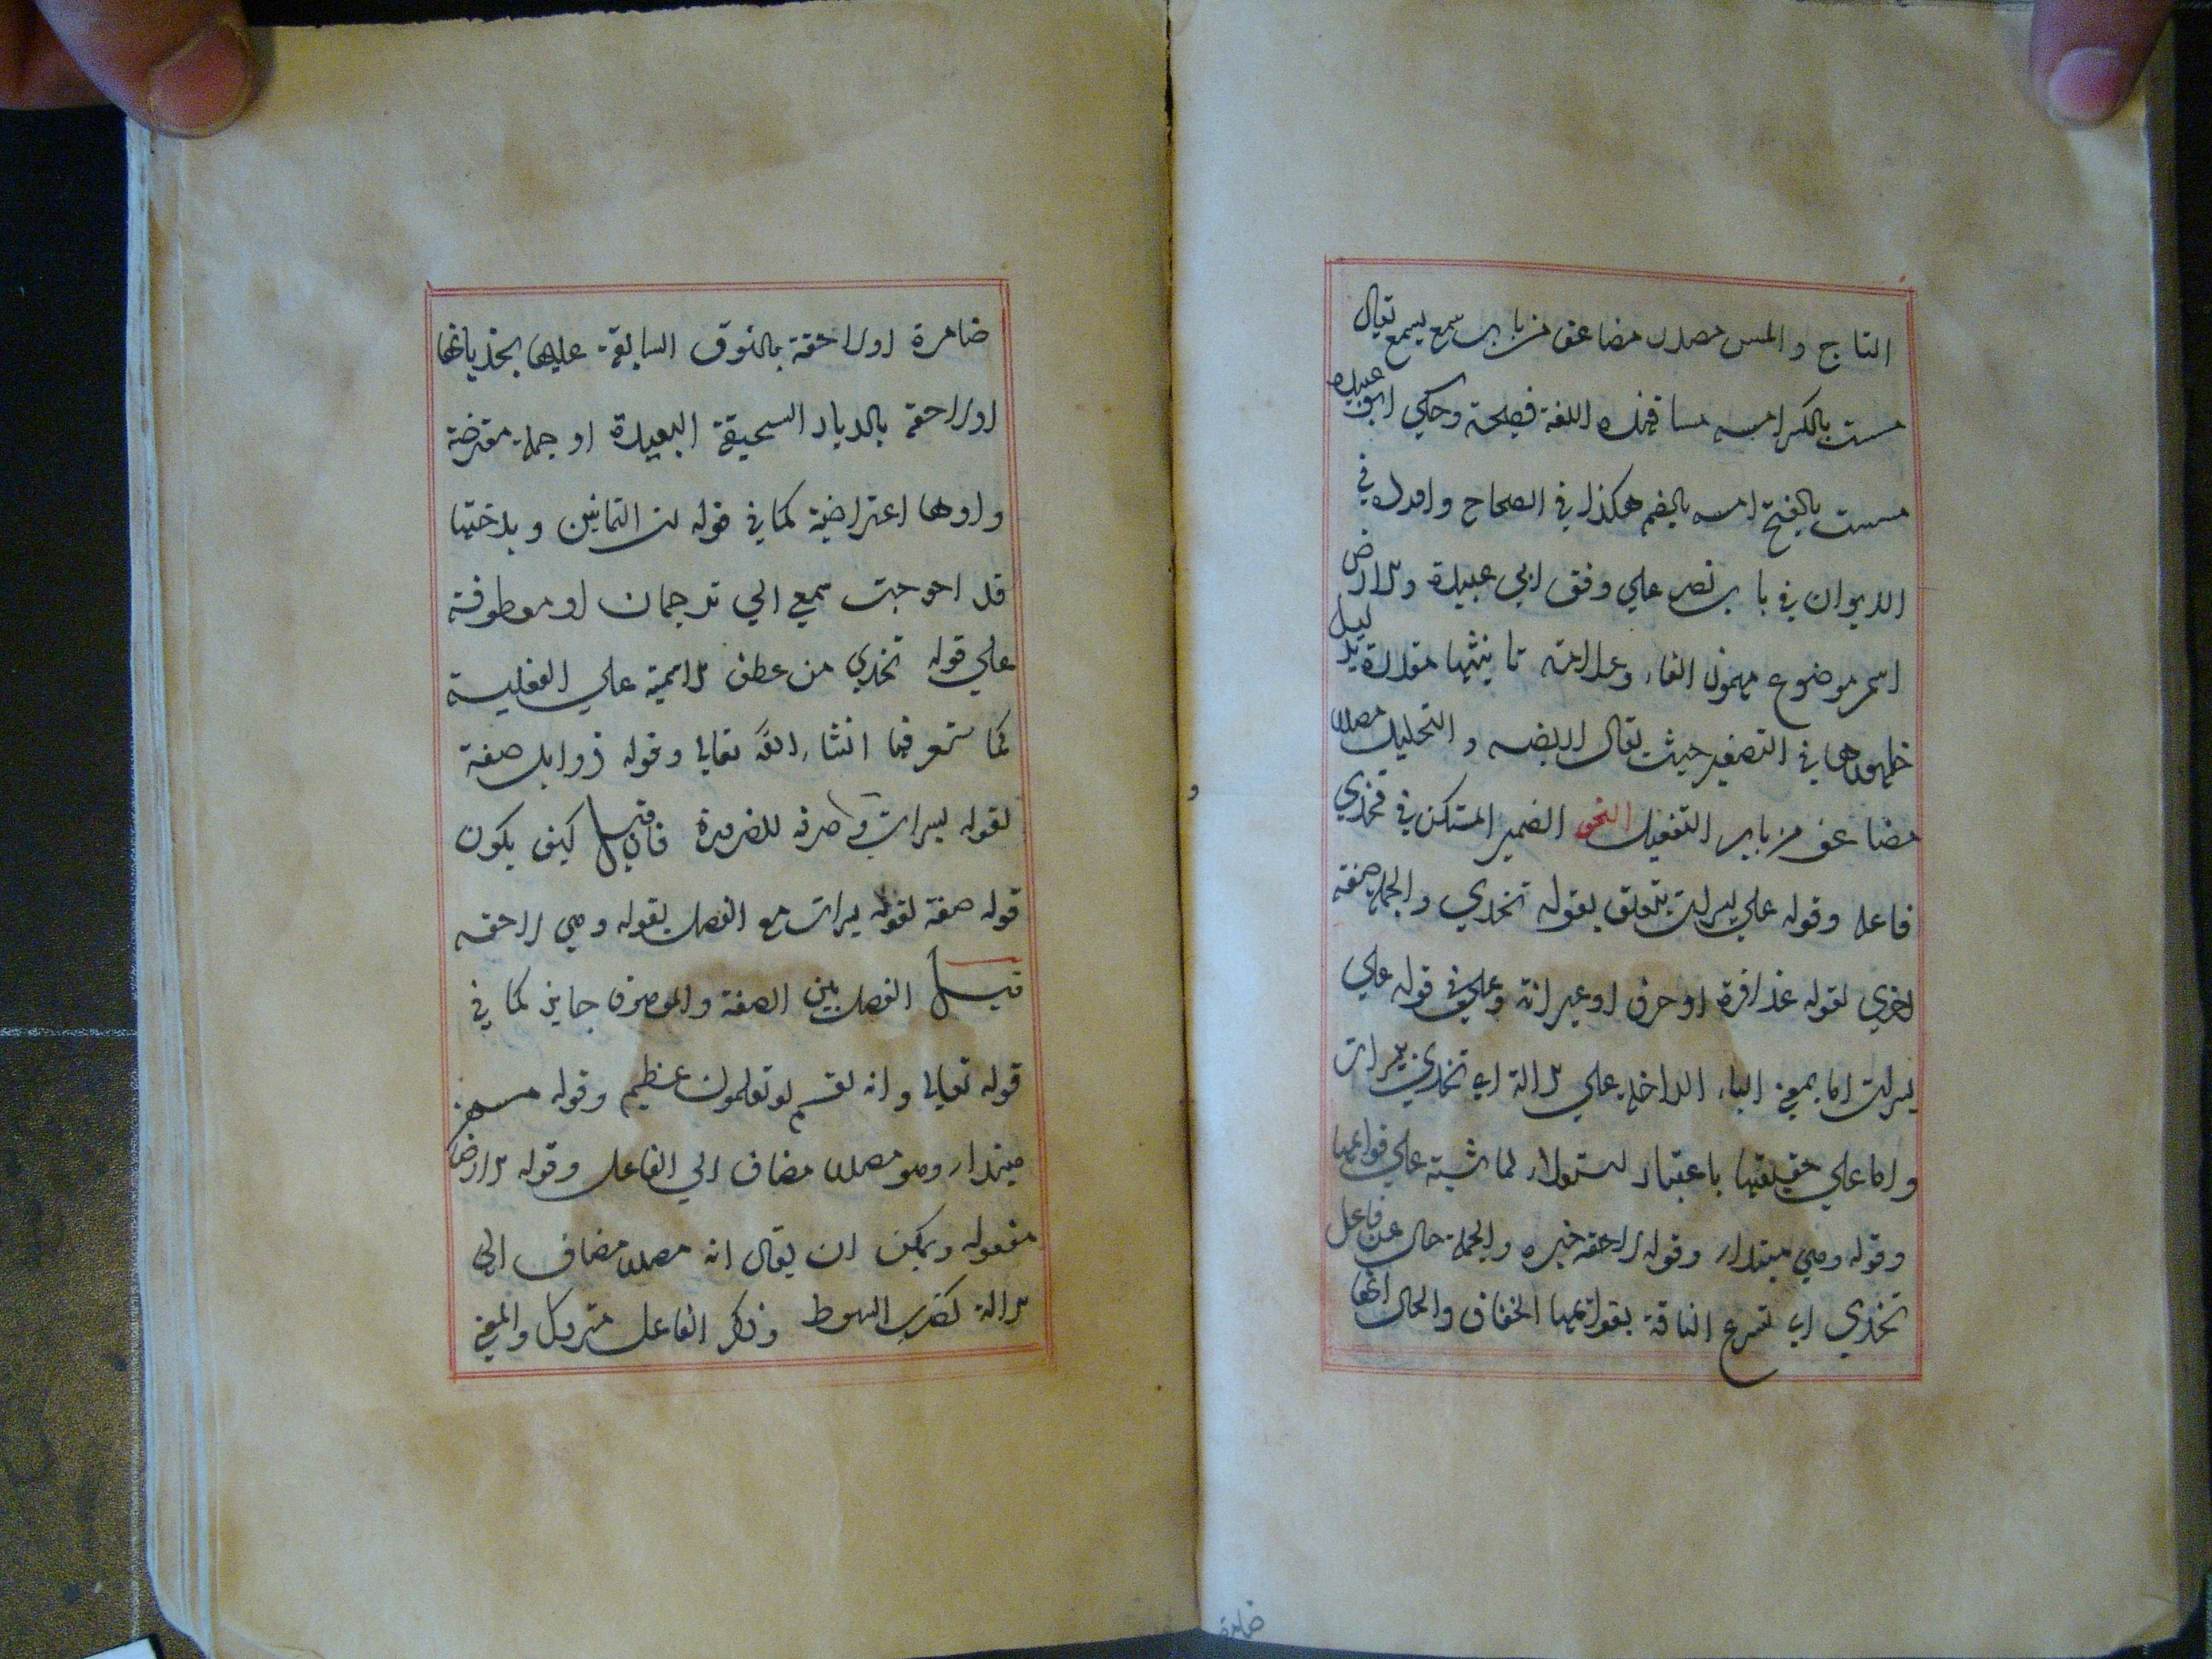 التاج والمس مصدر مضاعف من باب سمع يسمع يقال
مسست بالكسر امسه مسا فهذه اللغة فصيحة وحكى ابو عبيدة
مسست بالفتح امسه بالضم هكذا في الصحاح واورده في
الديوان في باب نصر على وفق ابي عبيدة والارض
اسم موضوع مهموز الفاء وعلامة تانيثها مقدرة بدليل
ظهورها في التصغير حيث يقال اريضه والتحليل مصدر
مضاعف من باب التفعيل النحو الضمير المستكن في تخدي
فاعله وقوله على يسرات يتعلق بقوله تخدي والجملة صفة
اخري لقوله عذافرة او حرف او عيرانة وعلى في قوله على
يسرات اما بمعنى الباء الداخلة على الالة اي تخدي بيسرات
واما على حقيقتها باعتبار استعلاء لماشية على قوائمها
وقوله وهي مبتداء وقوله لاحقة خبره والجملة حال عن فاعل
تخدي اي تسرع الناقة بقوائمها الخفاف والحال انها
ضامرة
ضامرة او لاحقة بالنوق السابقة عليها بخديانها
او لاحقة بالديار السحيقة البعيدة او جملة معترضة
واوها اعتراضية كما في قوله ان الثمانين وبلغتها
قد احوجت سمعي الي ترجمان او معطوفة
علي قوله تخدي من عطف الاسمية علي الفعلية
كما ستعرفها انشاء الله تعالى وقوله ذوابل صفة
لقوله يسرات وصرفه للضرورة فان قيل كيف يكون
قوله صفة لقوله يسرات مع الفصل بقوله وهي لاحقه
قيل الفصل بين الصفة والموصوف جايز كما في
قوله تعالى وانه لقسم لو تعلمون عظيم وقوله مسهن
مبتداء وهو مصدر مضاف الي الفاعل وقوله الارض
مفعوله ويمكن ان يقال انه مصدر مضاف الى
الالة كضرب السوط وذكر الفاعل متروك والمعنى